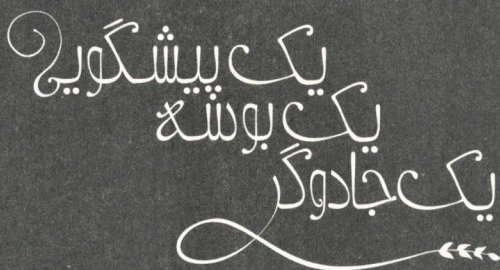 یک پیشگویی
یک بوسه
یک جادوگر